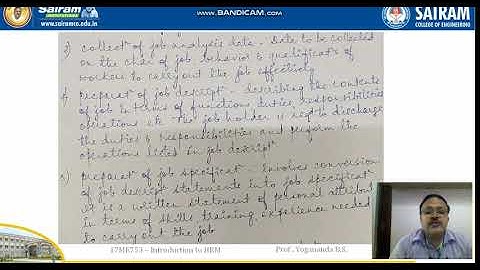 www.BANDICAM.com
Sairam
INSTITUTIONS
www.sairamce.edu.in
SAIRAM
COLLEGE OF ENGINEERING
3) collect of job analysis data - Data to be collected
on the char of job behavior & qualificat of
workers to carry out the job effectively
4) preparat of job descript - describing the contents
of job in terms of functions duties, responsibilities
operations etc The job holder is reqd to discharge
the duties & responsibilities and perform the
operations listed in job descript
5) preparat of job specificat - Involves conversion
of job descript statements into job specificat
it is a written statement of personal attribut
in terms of skills training, experience needed
to carry out the job
17ME753 – Introduction to HRM
Prof. Yogananda B.S.